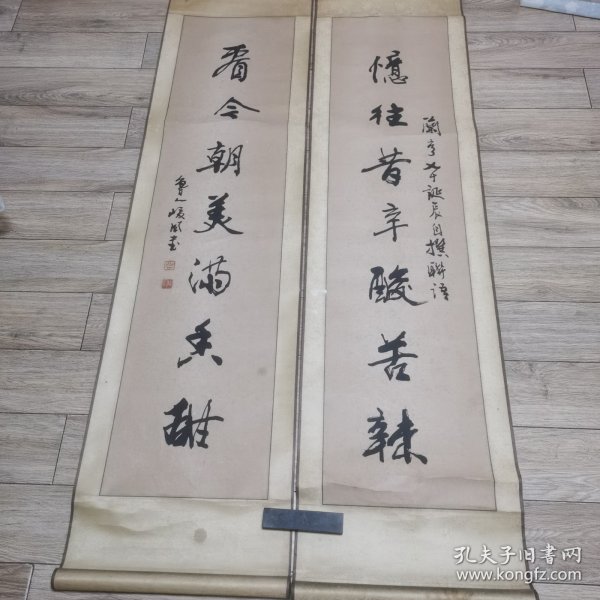 憶往昔辛酸苦辣
蘭亭七十誕辰自撰聯語
看今朝美滿香甜
孔夫子旧书网
www.kongfz.com